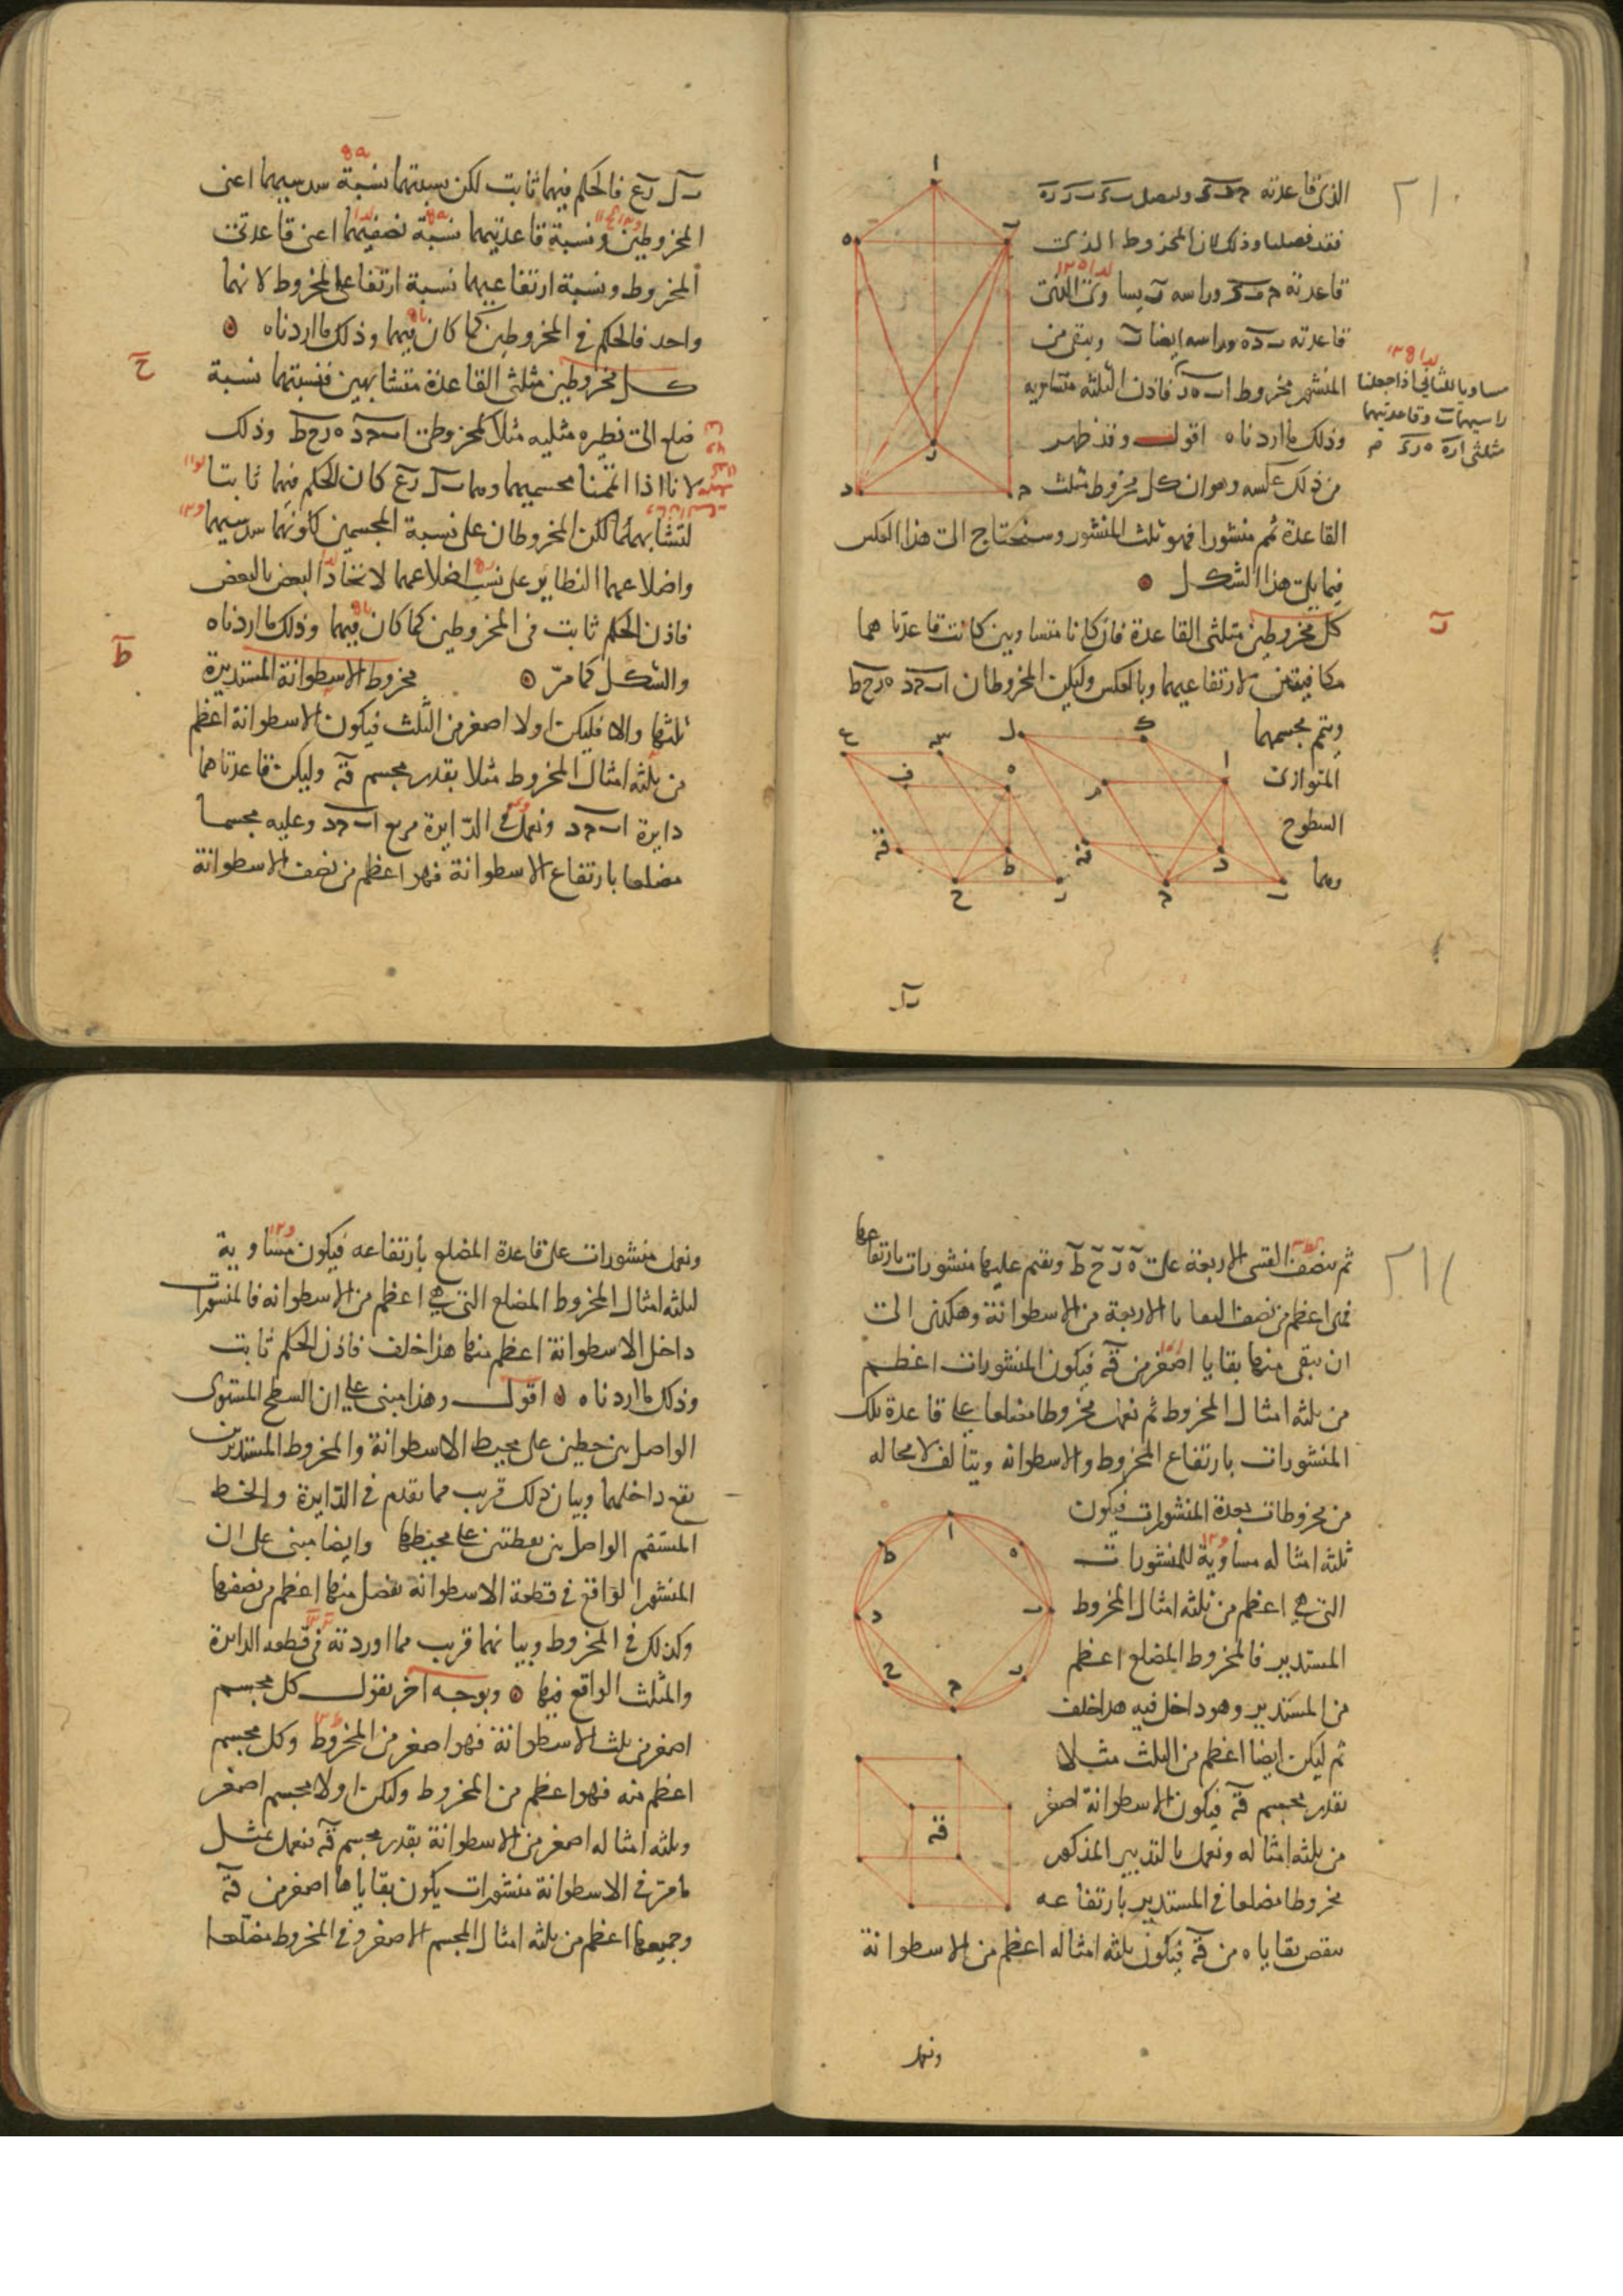 الذى قاعدته
فقد فصلنا وذلك لان المخروط الذى
قاعدته وراسه
قاعدته وراسه ايضا ب ويبقى من
المنشور مخروط فاذن الثلثة متساوية
وذلك ما اردناه اقول وقد ظهر
من ذلك عكسه وهو ان كل مخروط مثلث
القاعدة تمم منشورا فهو ثلث المنشور وسنحتاج الى هذا العكس
فيما يلى هذا الشكل
مساويا للثانى اذا جعلنا
وقاعدتيهما
مثلثى
كل مخروطين مثلثى القاعدة فان كانا متساويين كانت قاعدتاهما
مكافيتين لارتفاعيهما وبالعكس وليكن المخروطان ا ب ج د ه ر ح ط
ونتمم مجسميهما
المتوازى
السطوح
وهما
ب ل
٢١٠
ب ل ر ع فالحكم فيهما ثابت لكن نسبتهما نسبة سدسيهما اعنى
المخروطين ونسبة قاعدتيهما نسبة نصفيهما اعنى قاعدتى
المخروط ونسبة ارتفاعيهما نسبة ارتفاعى المخروط لانهما
واحد فالحكم فى المخروطين كما كان فيهما وذلك ما اردناه
ح
كل مخروطين مثلثى القاعدة متشابهين فنسبتهما نسبة
ضلع الى نظيره مثلثه مثلا كمخروطى ا ب ج د ه ر ح ط وذلك
لانا اذا اتممنا مجسميهما وهما ب ل ر ع كان الحكم فيهما ثابتا
لتشابههما لكن المخروطان على نسبة المجسمين لكونهما سدسيهما
واضلاعهما النظاير على نسب اضلاعهما لاتحاد البعض بالبعض
فاذن الحكم ثابت فى المخروطين كما كان فيهما وذلك ما اردناه
ط
والشكل كما مر مخروط الاسطوانة المستديرة
ثلثها والا فليكن اولا اصغر من الثلث فيكون الاسطوانة اعظم
من ثلثه امثال المخروط مثلا بقدر مجسم ق وليكن قاعدتاهما
دايرة ا ب ج د ونعمل فى الدايرة مربع ا ب ج د وعليه مجسما
مضلعا بارتفاع الاسطوانة فهو اعظم من نصف الاسطوانة
٢١١
ثم ننصف القسى الاربعة على ه ر ح ط ونقيم عليها منشورات بارتفاعها
فهى اعظم من نصف البقايا الاربعة من الاسطوانة وهكذى الى
ان يبقى منها بقايا اصغر من ق فيكون المنشورات اعظم
من ثلثه امثال المخروط ثم نعمل مخروطا مضلعا على قاعدة تلك
المنشورات بارتفاع المخروط والاسطوانه ويتالف لا محاله
من مخروطات بعدة المنشورات فيكون
ثلثه امثاله مساوية للمنشورات
التى هى اعظم من ثلثه امثال المخروط
المستدير فالمخروط المضلع اعظم
من المستدير وهو داخل فيه هذا خلف
ثم ليكن ايضا اعظم من الثلث مثلا
بقدر مجسم ق فيكون الاسطوانة اصغر
من ثلثه امثاله ونعمل بالتدبير المذكور
مخروطا مضلعا فى المستدير بارتفاعه
ينقص بقاياه من ق فيكون ثلثه امثاله اعظم من الاسطوانة
ونعمل
ونعمل منشورات على قاعدة المضلع بارتفاعه فيكون مساوية
لثلثه امثال المخروط المضلع التى هى اعظم من الاسطوانه فالمنشورات
داخل الاسطوانة اعظم منها هذا خلف فاذن الحكم ثابت
وذلك ما اردناه اقول وهذا مبنى على ان السطح المستوى
الواصل بين خطين على محيط الاسطوانة والمخروط المستديرين
يقع داخلهما وبيان ذلك قريب مما تقدم فى الدايرة والخط
المستقيم الواصل بين نقطتين على محيطها وايضا مبنى على ان
المنشور الواقع فى قطعة الاسطوانه يفصل منها اعظم من نصفها
وكذلك فى المخروط وبيانهما قريب مما اوردته فى قطعه الدايرة
والمثلث الواقع فيها وبوجه اخر نقول كل مجسم
اصغر من ثلث الاسطوانة فهو اصغر من المخروط وكل مجسم
اعظم منه فهو اعظم من المخروط وليكن اولا مجسم اصغر
وثلثه امثاله اصغر من الاسطوانة بقدر مجسم ق فنعمل بمثل
ما مر فى الاسطوانة منشورات يكون بقاياها اصغر من ق
وجميعها اعظم من ثلثه امثال المجسم الاصغر وفى المخروط مضلعا